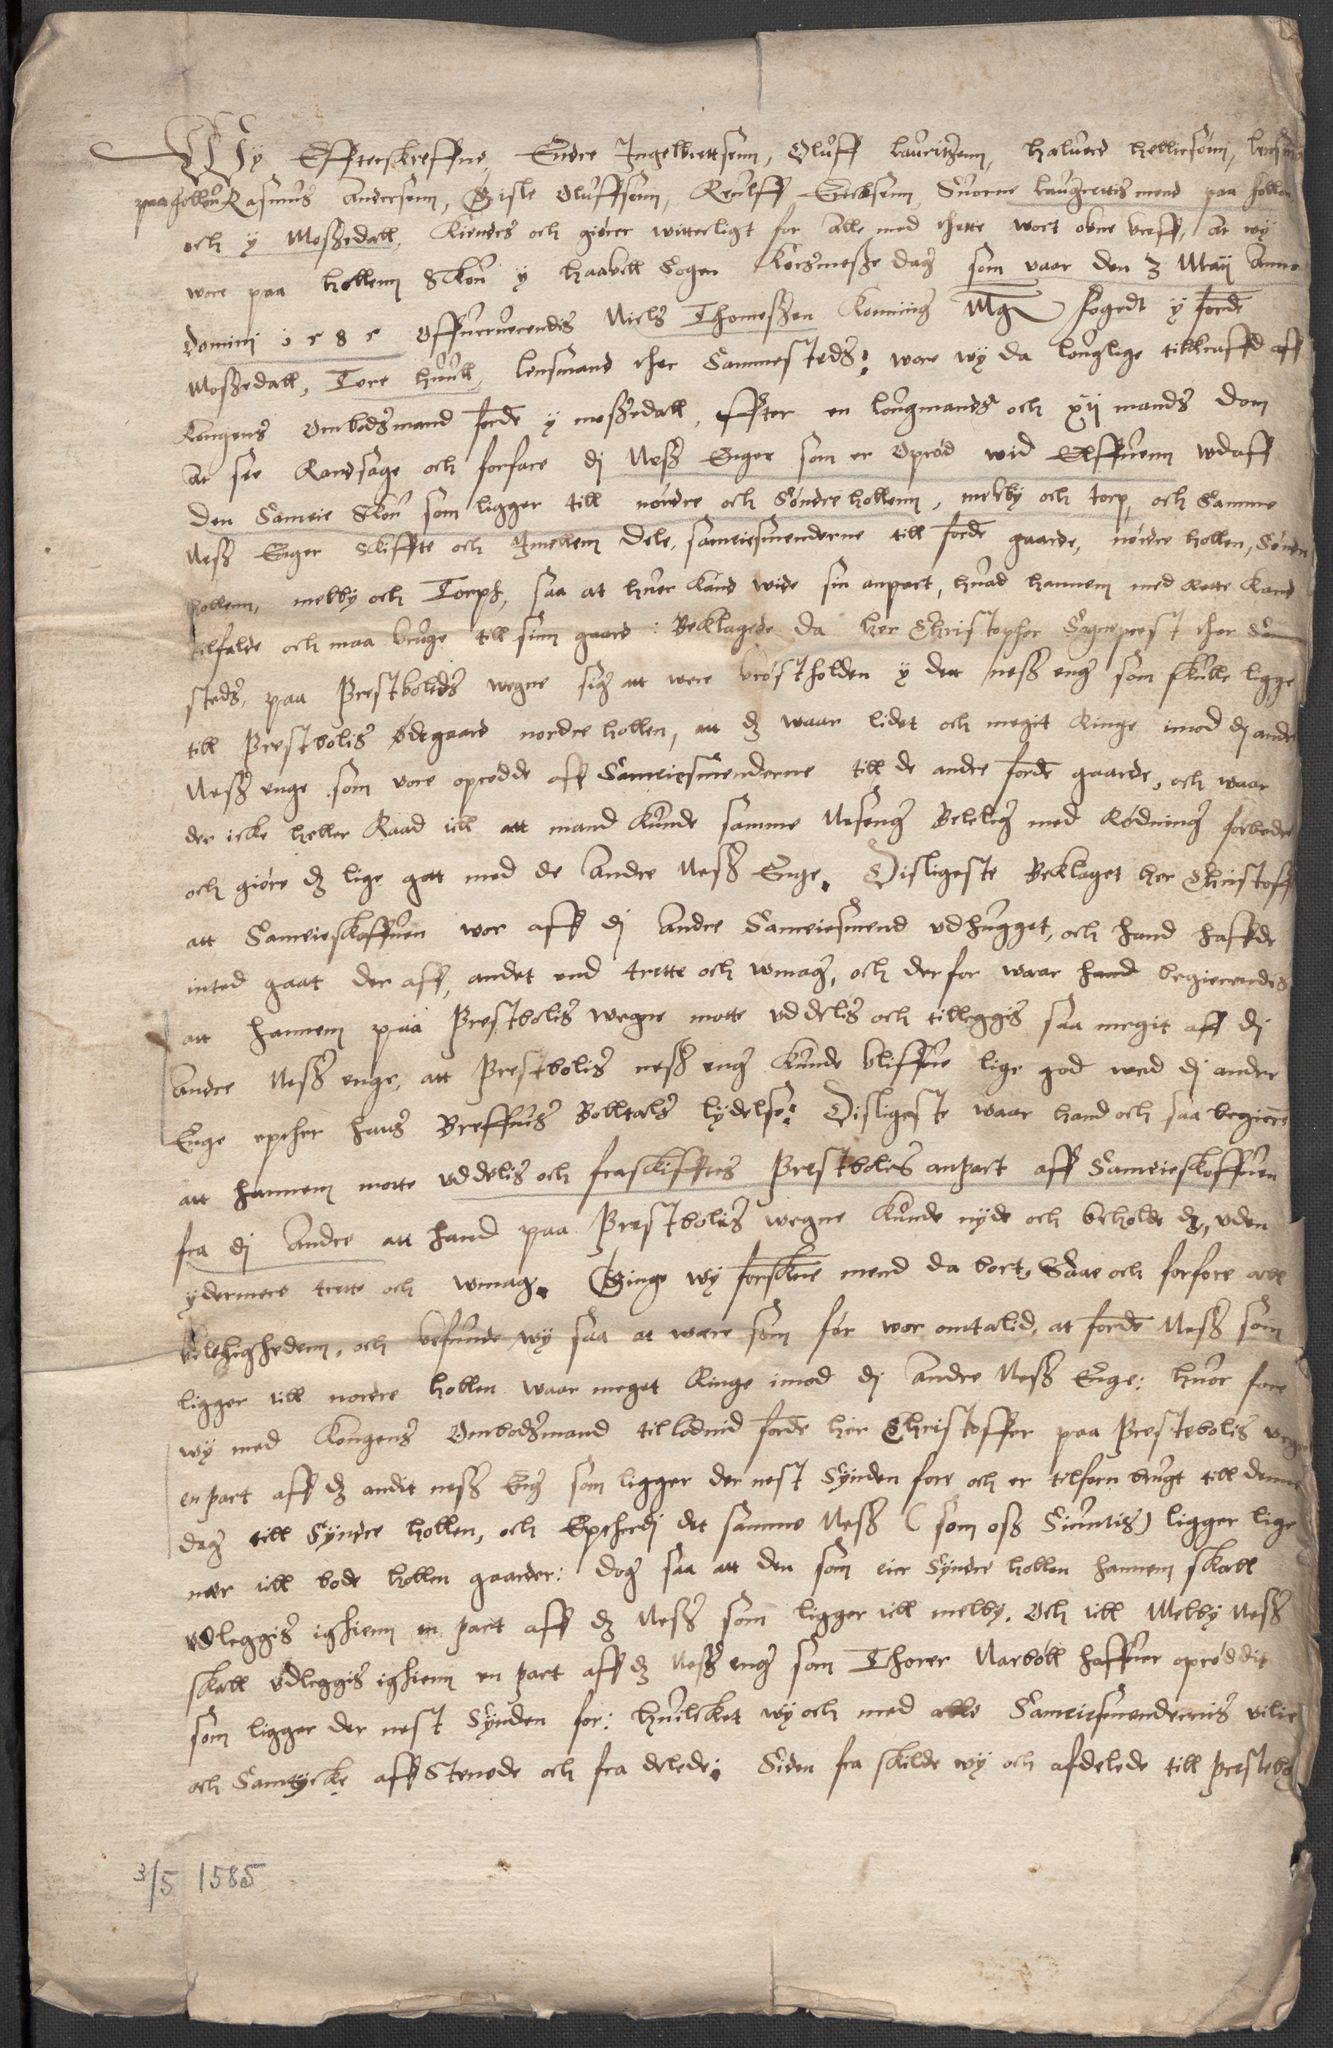 Wy Effterskreffne, Endre Ingelbrettsenn, Oluff lauritzenn, halvord helliesønn,
paa follou Rasmus Andersenn, Gisle Oluffsenn, Reulff Ericksenn, Suorne laugrettis mend paa follou
och y Moßedall, Kiendes och giører witterligt for alle med thette wort obne breff, at wy
wore paa hollenn Skou y haabell Sogen Korsmeße dag som vaar den 3 Maij Anno
Domini 1585 Offueruerendis Niels Thomeßen Konning Mgt fogedt y forde
Moßedall, Tore huull, lensmand ther Sammesteds: wore wy da louglige tilkraffd aff
Kongens Ombodsmand forde y moßedall, effter en lougmands och xij mands dom
at see Randsage och forfare dj Neß Enger som er Oprød wid Elffuenn wdaff
den Sameie Skou som ligger till nørdre och Søndre hollenn, melby och torp, och Samme
Neß Enger Skiffte och Jmellem dele, sameiesmenderne till forde gaarde, nørdre hollen, Søndre
hollenn, melby och Torp, saa at huer kand wide sin anpart, huad hannem med Rette kand
tilfalde och maa bruge till sinn gaard: Beklagede da her Christopher Sogneprest ther Sam
steds, paa Prestbolids wegne sig att were brøstholden y dett neß eng som skulle ligge
till Prestbolis ødegaard nordre hollen, att dz waar lidet och meget Ringe imod dj andre
Neß enge som vore oprødde aff Sameiesmenderne till de andre forde gaarde, och waar
der icke heller Raad till att mand kunde samme Neßeng Beleilig med Rødning forbedre
och giøre dz lige gott med de Andre Neß Enge. Disligeste Beklaget her Christoffer
att Sameieskoffuen wor aff dj Andre Sameiesmend udhugget, och hand haffde
inted gaat der aff, andet end trette och wmag, och derfor waar hand begierendes
att hannem paa Prestbolis wegne motte uddelis och tilleggis saa megit aff dj
Andre Neß enge, att Prestbolis neß eng kunde bliffue lige god wed dj andre
Enge epther hans Breffuis Bolltals lydelse: Disligeste waar hand och saa begierend
att hannem motte uddelis och fraskifftes Prestbolis anpart aff Sameieskoffuen
fra dj Andre att hand paa Prestbolis wegne kunde nyde och beholde dz, uden
ydermere trette och wmag. Ginge wy forskne mend da bort, Saae och forfore all
beleiligheden, och befunde wy saa at were som før wor omtalid, at forde Neß som
ligger till nordre hollen waar meget Ringe imod dj Andre Neß Enge: huor fore
wy med Kongens Ombodsmand tillodnid forde her Christoffer paa Prestebolis wegne
en part aff dz andit neß Eng som ligger der nest Synden fore och er tilforn brugt till denne
dag till Syndre hollen, och Eptherdj det samme Neß (som oss Siuntis) ligger lige
nær till bode hollen gaarder: dog saa att den som eier Syndre hollen hannem skall
udleggis ighienn en part aff dz Neß som ligger till melby. Och till Melby Neß
skall udleggis ighienn en part aff dz Neß eng som Thorer Narboll haffuer oprøddit
som ligger der nest Synden for: huilcket wy och med alle Sameiesmendernis vilie
och Samtycke aff Stenede och fra delede: Siden fra skilde wy och afdelede till prestebo
3/5 1585